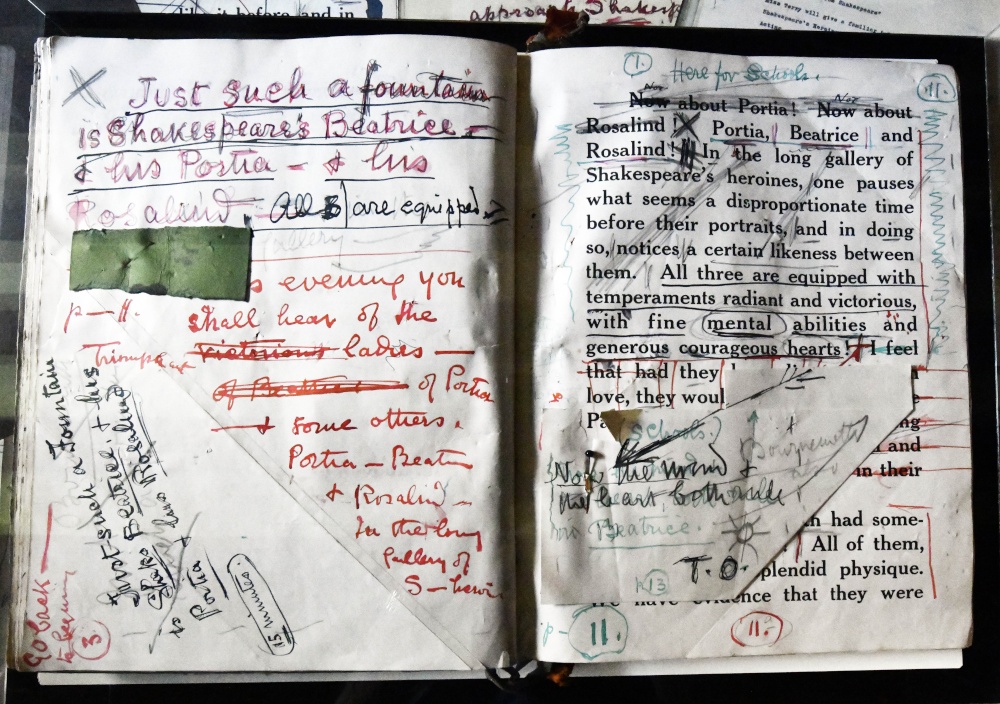 Like it before, and in
approach Shakesp
Miss Terry will give a familiar
Shakespeare's Heroin
X Just such a fountain
is Shakespeare's Beatrice -
& his Portia - & his
Rosalind - All 3 are equipped
gallery
s evening you
p-11. shall hear of the
Triumphant victorious ladies -
of Portia
& some others.
Portia - Beatr
& Rosalind -
In the long
gallery of
S- heroi
Just such a Fountain
Shakes Beatrice. & his
Portia & his Rosalind
15 minutes.
Go back
3
1. Here for Schools. 11.
Now
Now about Portia! Now about
Rosalind! X Portia, Beatrice and
Rosalind! In the long gallery of
Shakespeare's heroines, one pauses
what seems a disproportionate time
before their portraits, and in doing
so, notices a certain likeness between
them. All three are equipped with
temperaments radiant and victorious,
with fine mental abilities and
generous courageous hearts! I feel
that had they
love, they woul
Pa ng
Schools. Bournemouth and
Now the mind & in their
the heart, both
Beatrice.
h had some-
All of them,
T.O. plendid physique.
p13
We have evidence that they were
p- 11. 11.